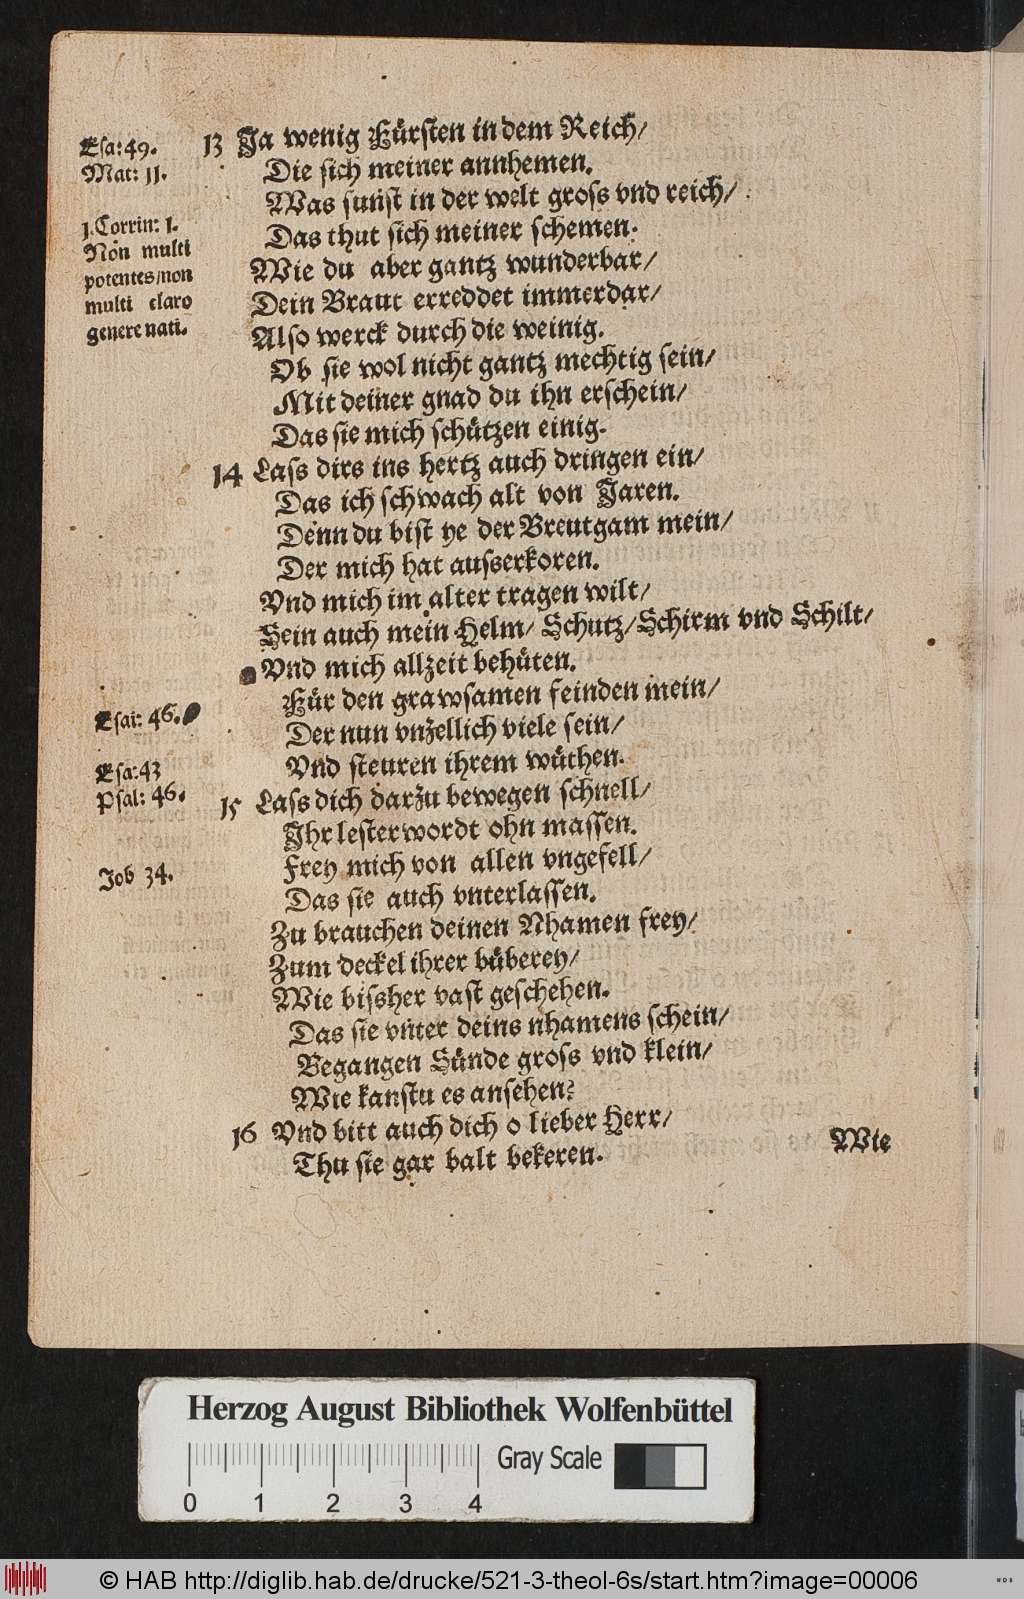 Esa: 49.
Mat: 11.
1. Corrin: 1.
Non multi
potentes/non
multi claro
genere nati.
13 Ja wenig Fürsten in dem Reich/
Die sich meiner annhemen.
Was sunst in der welt gross vnd reich/
Das thut sich meiner schemen.
Wie du aber gantz wunderbar/
Dein Braut erreddet immerdar/
Also werck durch die weinig.
Ob sie wol nicht gantz mechtig sein/
Mit deiner gnad du ihn erschein/
Das sie mich schützen einig.
14 Lass dirs ins hertz auch dringen ein/
Das ich schwach alt von Jaren.
Denn du bist ye der Breutgam mein/
Der mich hat ausserkoren.
Vnd mich im alter tragen wilt/
Sein auch mein Helm/ Schutz/ Schirm vnd Schilt/
Vnd mich allzeit behüten.
Für den grawsamen feinden mein/
Der nun vnzellich viele sein/
Vnd steuren ihrem wüthen.
Esai: 46.
Esa: 43
Psal: 46.
15 Lass dich darzu bewegen schnell/
Ihr lesterwordt ohn massen.
Frey mich von allen vngefell/
Das sie auch vnterlassen.
Job 34.
Zu brauchen deinen Nhamen frey/
Zum deckel ihrer büberey/
Wie bissher vast geschehen.
Das sie vnter deins nhamens schein/
Begangen Sünde gross vnd klein/
Wie kanstu es ansehen?
16 Vnd bitt auch dich o lieber Herr/
Thu sie gar balt bekeren.
Wie
Herzog August Bibliothek Wolfenbüttel
Gray Scale
0 1 2 3 4
© HAB http://diglib.hab.de/drucke/521-3-theol-6s/start.htm?image=00006